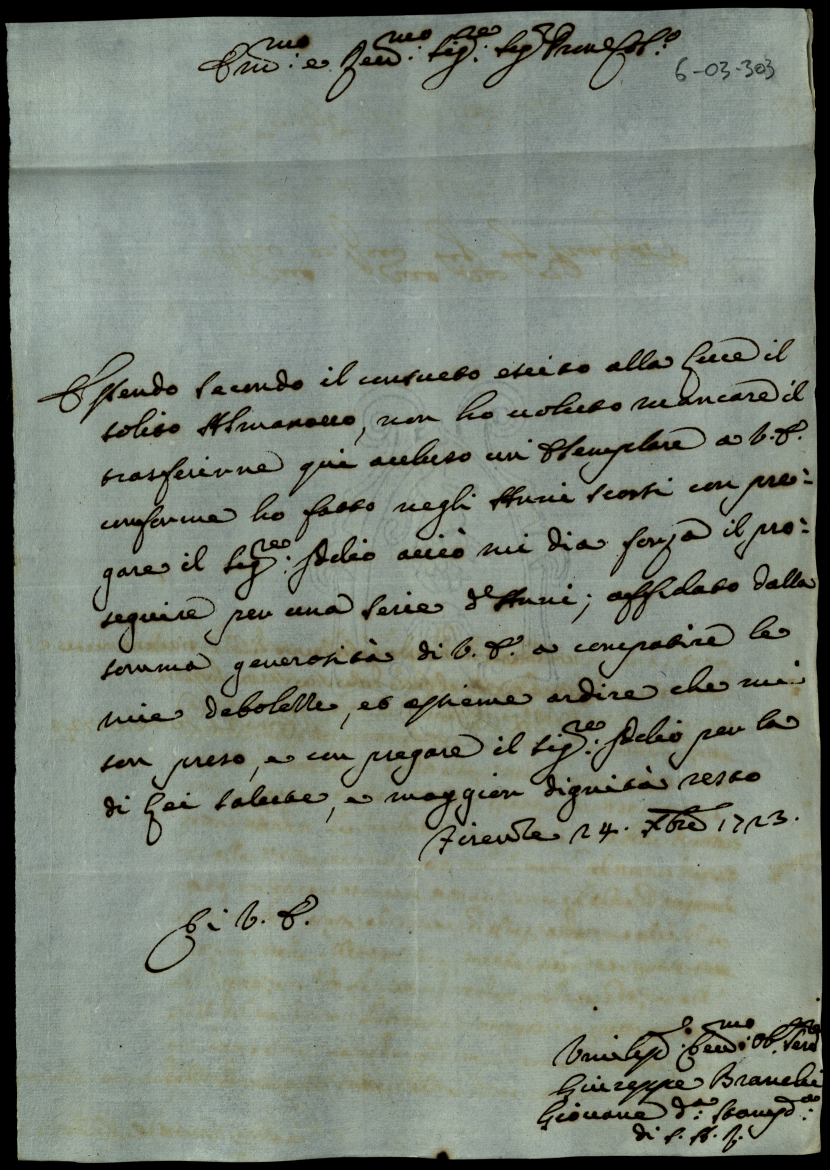 Em.mo: e Reu.mo: Sig.re: Sig.r Prone Col.o
6-03-303
Essendo secondo il consueto escito alla Luce il
solito Almanacco, non ho uoluto mancare il
trasferirne qui accluso un Esemplare a V. E.
conforme ho fatto negli Anni scorsi con pre:
gare il Sig.re: Iddio acciò mi dia forza il pro:
seguire per una serie d'Anni; affidato dalla
somma generosità di V. E. a compatire le
mie debolezze, et assieme ardire che mi
son preso, e con pregare il Sig.re: Iddio per la
di Lei salute, e maggior dignità resto
Firenze 24. Xbre 1723.
Di V. E.
Umiliss.o: Deu.mo: Ob. Seru.re
Giuseppe Branchi
Giovane d.a: Stamp.a:
di S. A. R.